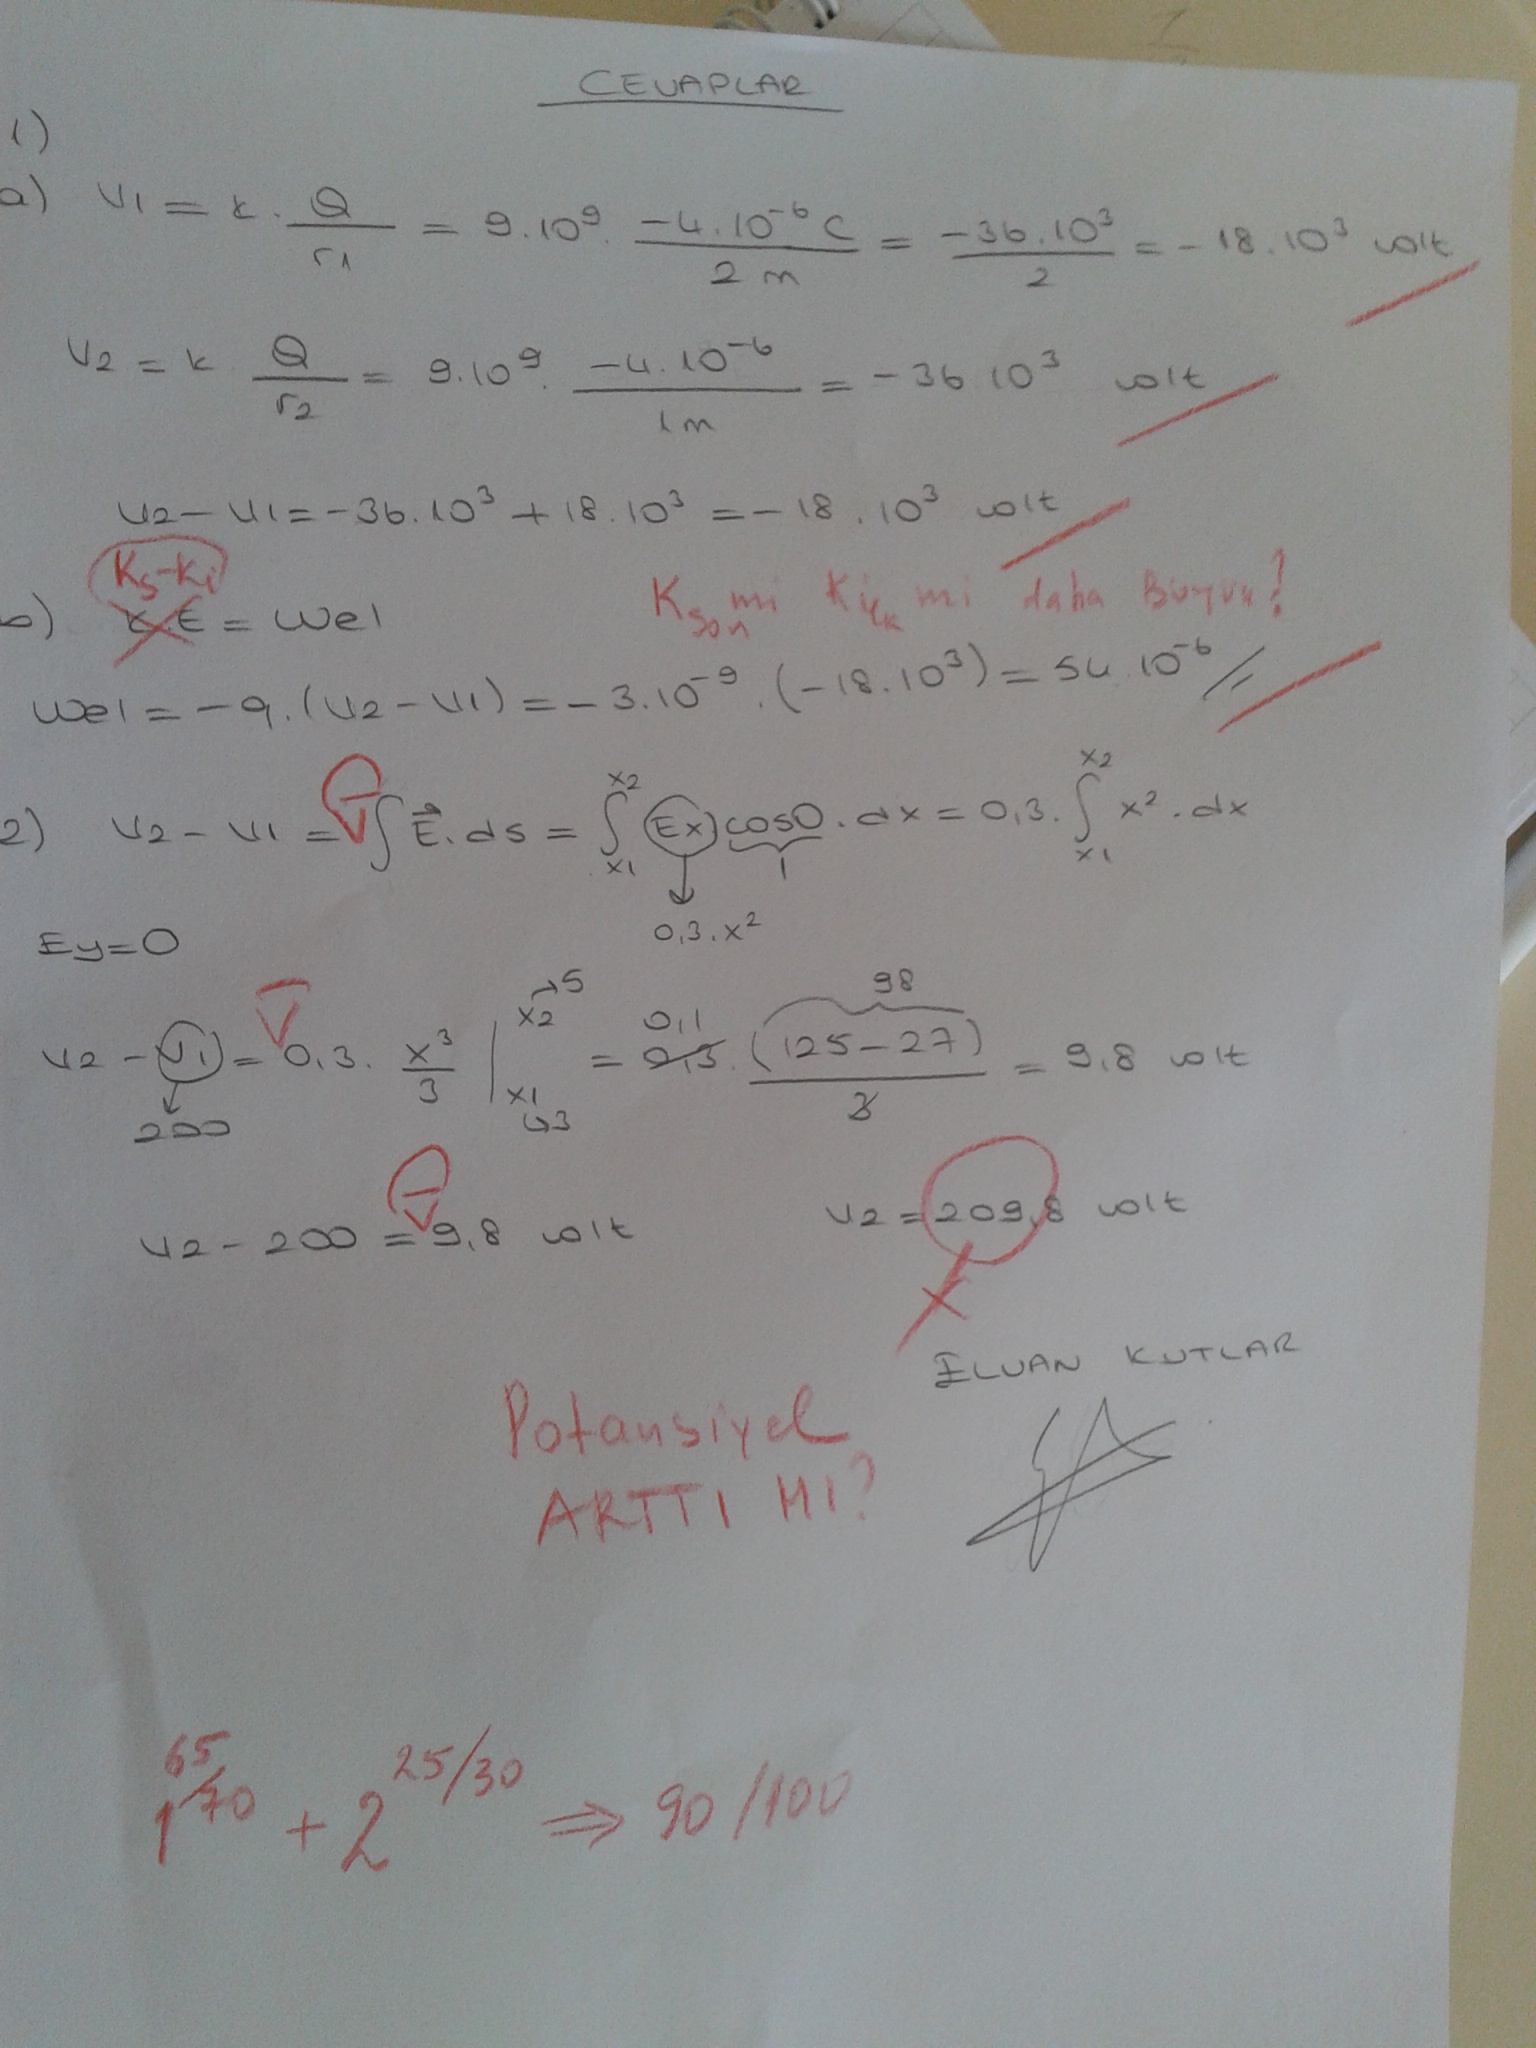 CEVAPLAR
1)
a) V1 = k . Q/r1 = 9.10⁹ . -4.10⁻⁶ C / 2 m = -36.10³ / 2 = -18.10³ volt
V2 = k Q/r2 = 9.10⁹ . -4.10⁻⁶ / 1m = -36.10³ volt
V2 - V1 = -36.10³ + 18.10³ = -18.10³ volt
Ks-Ki
Kson mı Kilk mi daha Büyük?
b) K.E = Wel
Wel = -q.(V2-V1) = -3.10⁻⁹ . (-18.10³) = 54.10⁻⁶ //
2) V2 - V1 = - ∫ E⃗. ds = ∫x1^x2 (Ex) cos0 . dx = 0,3. ∫x1^x2 x² . dx
1
0,3.x²
Ey=0
V2 - V1 = - 0,3. x³/3 | x2→5 x1→3 = 0,1 0,3. (125-27) / 3 = 9,8 volt
98
200
V2 - 200 = - 9,8 volt V2 = 209,8 volt
ELVAN KUTLAR
Potansiyel
ARTTI MI?
1 65/70 + 2 25/30 ⇒ 90/100